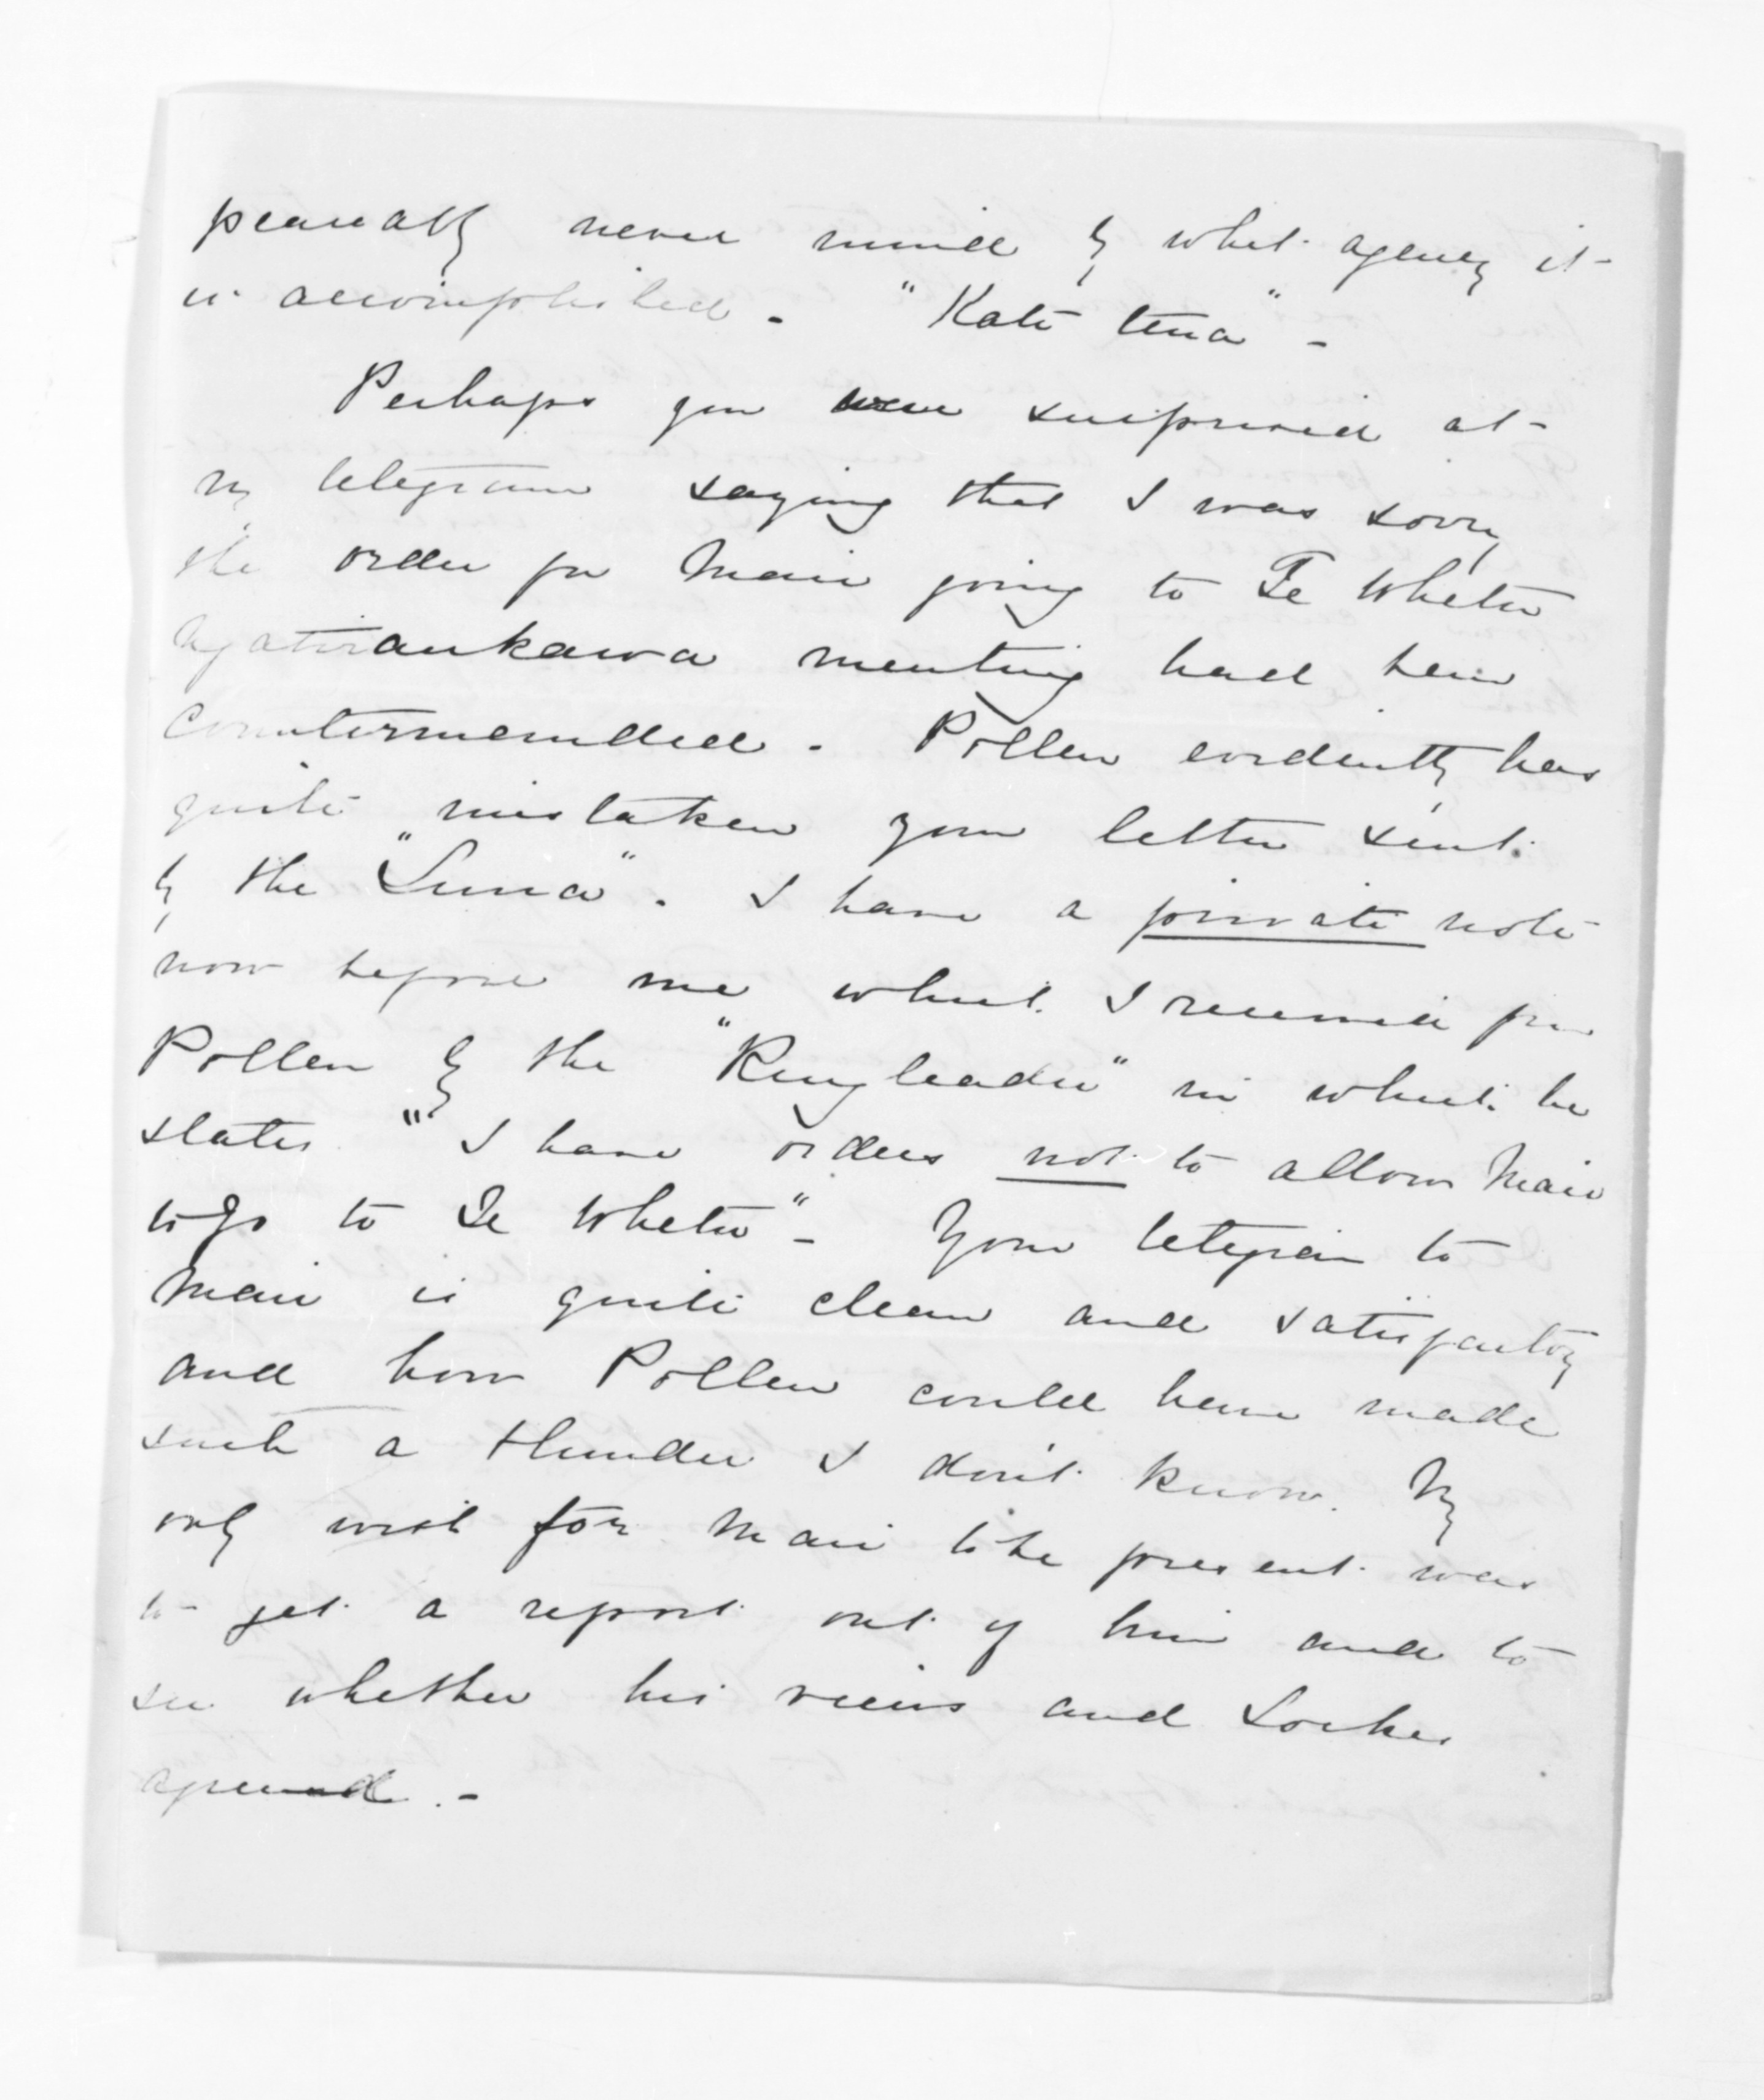 peaceably never mind by what agency it
is accomplished. - "Kati tena" -
Perhaps you were surprised at
my telegram saying that I was sorry
the order for Mair going to Te Whetu
Ngatiraukawa meeting had been
countermanded. Pollen evidently has
quite mistaken your letter sent
by the "Luna". I have a private note
now before me which I received from
Pollen by the "Ringleader" in which he
states "I have orders not to allow Mair
to go to Te Whetu" - Your telegram to
Mair is quite clear and satisfactory
and how Pollen could have made
such a blunder I don't know. My
only wish for Mair to be present was
to get a report out of him and to
see whether his views and Lockes
agreed. -